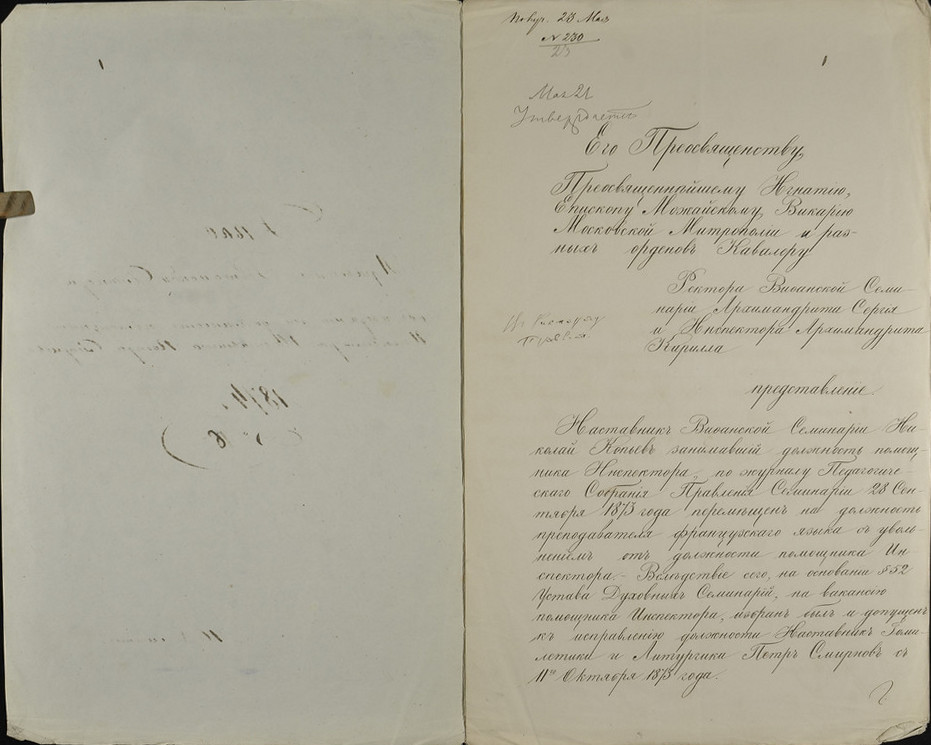 Получ. 23 Мая
№ 230
23
Мая 21
Утверждается
Его Преосвященству,
Преосвященнѣйшему Игнатію,
Епископу Можайскому, Викарію
Московской Митрополіи и раз-
ныхъ орденовъ Кавалеру
Ректора Виѳанской Семи-
наріи Архимандрита Сергія
и Инспектора Архимандрита
Кирилла
представленіе.
Наставникъ Виѳанской Семинаріи Ни-
колай Копьевъ занимавшій должность помощ-
ника Инспектора, по журналу Педагогиче-
скаго Собранія Правленія Семинаріи 28 Сен-
тября 1873 года перемѣщенъ на должность
преподавателя французскаго языка съ уволь-
неніемъ отъ должности помощника Ин-
спектора. - Вслѣдствіе сего, на основаніи § 52
Устава Духовныхъ Семинарій, на вакансію
помощника Инспектора, избранъ былъ и допущенъ
къ исправленію должности Наставникъ Гоми-
летики и Литургики Петръ Смирновъ съ
11го Октября 1873 года.